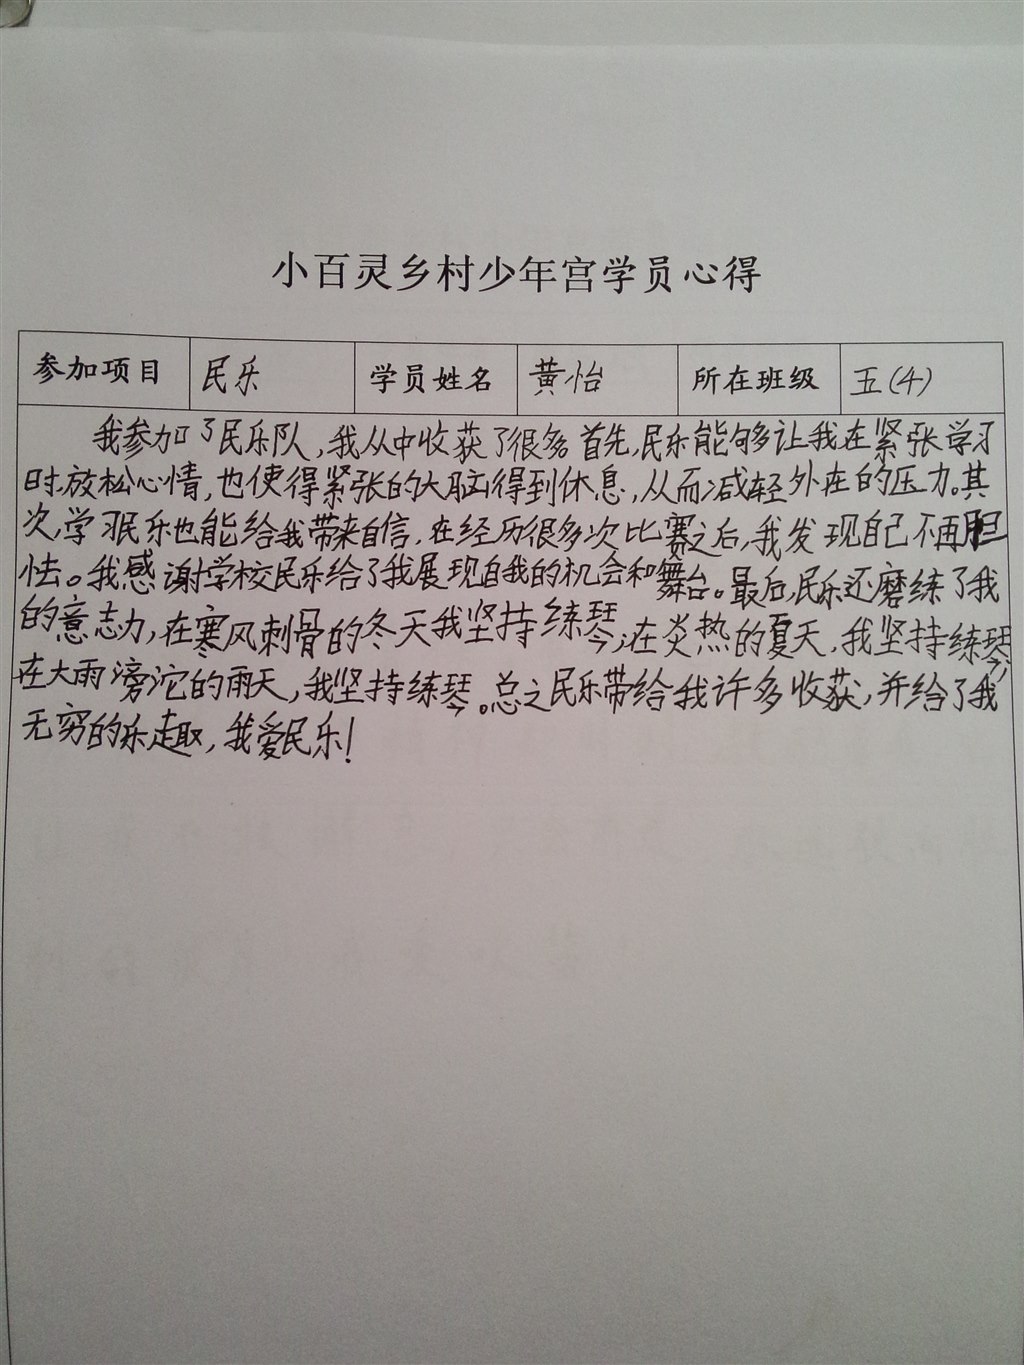 小百灵乡村少年宫学员心得
参加项目 民乐 学员姓名 黄怡 所在班级 五(4)
我参加了民乐队,我从中收获了很多首先,民乐能够让我在紧张学习
时,放松心情,也使得紧张的大脑得到休息,从而减轻外在的压力。其
次,学习民乐也能给我带来自信,在经历很多次比赛之后,我发现自己不再胆
怯。我感谢学校民乐给了我展现自我的机会和舞台。最后,民乐还磨练了我
的意志力,在寒风刺骨的冬天我坚持练琴;在炎热的夏天,我坚持练琴;
在大雨滂沱的雨天,我坚持练琴。总之民乐带给我许多收获,并给了我
无穷的乐趣,我爱民乐!